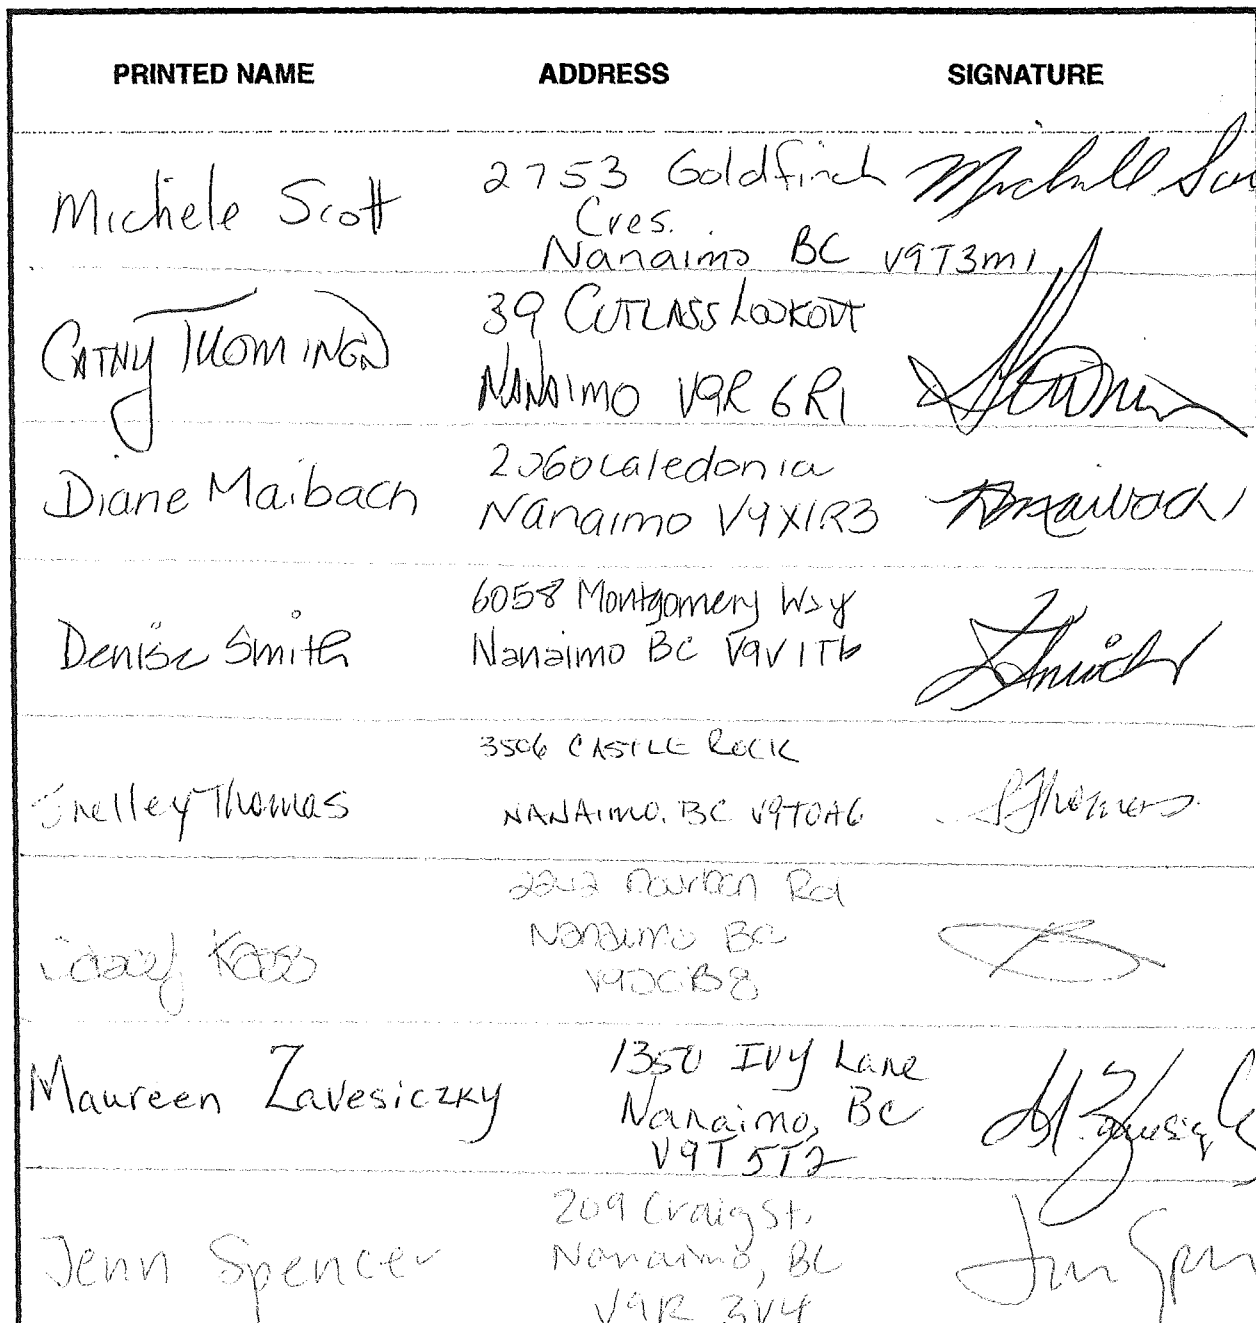 PRINTED NAME ADDRESS SIGNATURE
Michele Scott 2753 Goldfinch
Cres.
Nanaimo BC V9T3M1
CATHY 39 CUTLASS LOOKOUT
NANAIMO V9R 6R1
Diane Maibach Caledonia
Nanaimo V9X1R3
Denise Smith 6058 Montgomery Way
Nanaimo BC V9V1T6
Shelley Thomas 3506 CASTLE ROCK
NANAIMO. BC V9T0A6 SThomas
Rd
Nanaimo BC
Maureen Zavesiczky 1350 IVY Lane
Nanaimo, BC
V9T 5T2
Jenn Spencer 209 Craig St.
Nanaimo, BC
V9R 3V4